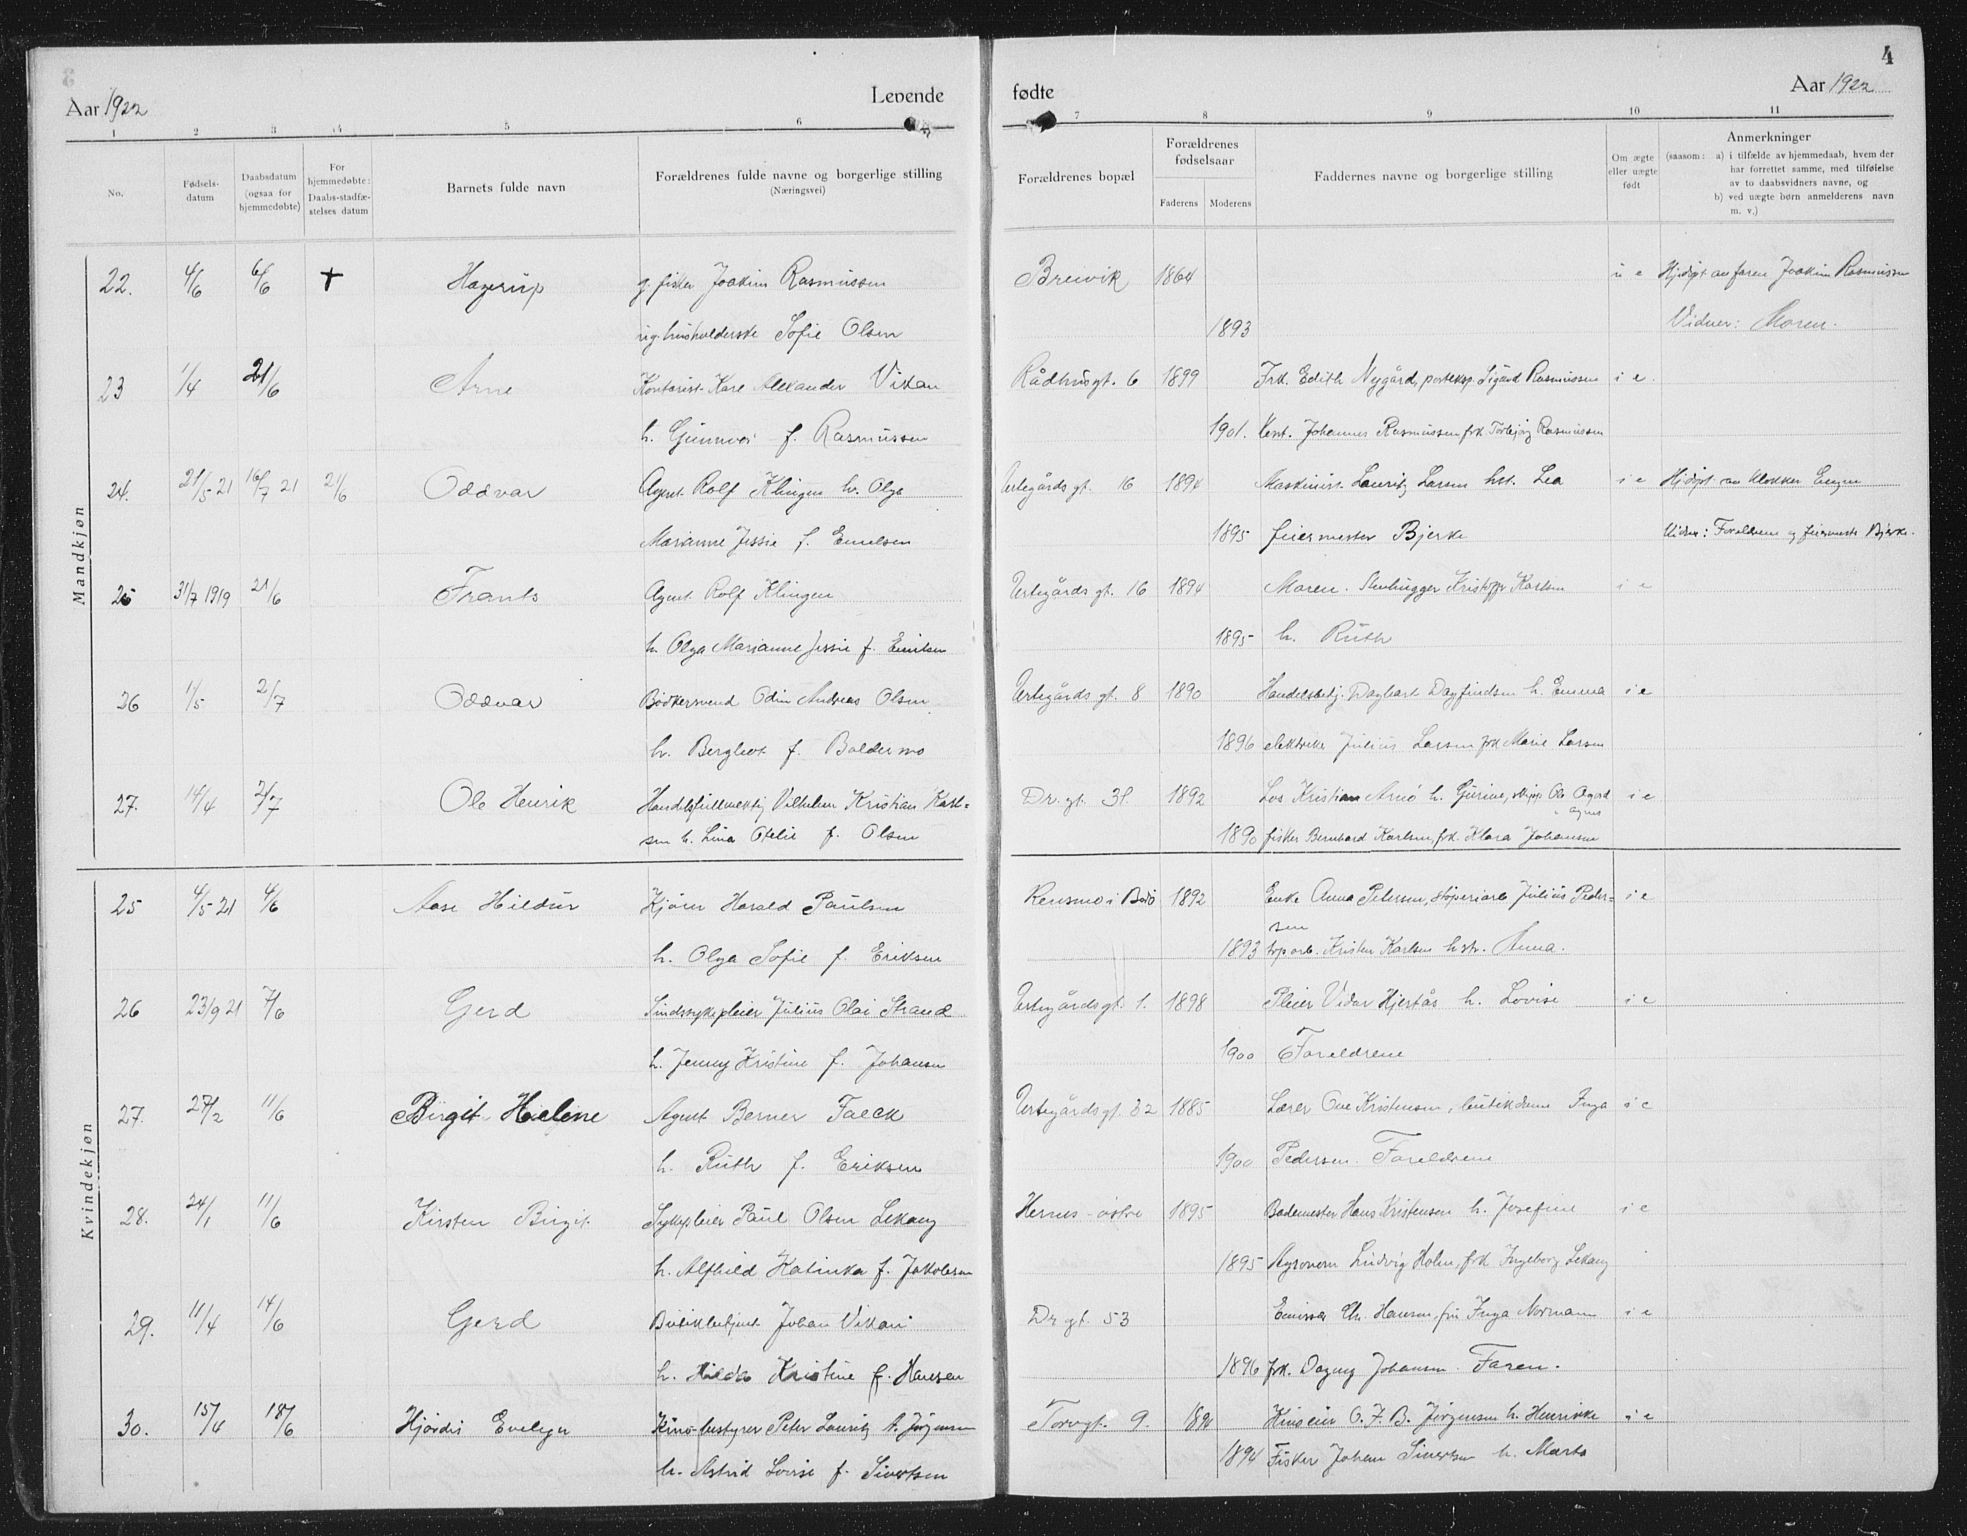 4
Aar 1922 Levende fødte Aar 1922
1 2 3 4 5 6 7 8 9 10 11
No.
Fødsels-
datum
Daabsdatum
(ogsaa for
hjemmedøbte)
For
hjemmedøbte:
Daabs-stadfæ-
stelses datum
Barnets fulde navn
Forældrenes fulde navne og borgerlige stilling
(Næringsvei)
Forældrenes bopæl
Forældrenes
fødselsaar
Faderens Moderens
Faddernes navne og borgerlige stilling
Om ægte
eller uægte
født
Anmerkninger
(saasom: a) i tilfælde av hjemmedaab, hvem der
har forrettet samme, med tilføielse
av to daabsvidners navne, og
b) ved uægte børn anmelderens navn
m. v.)
Mandkjøn
22. 4/6 6/6 + Hagerup g. fisker Joakim Rasmussen Breivik 1864 u e Hjdøpt av faren Joakim Rasmussen
ug. husholderske Sofie Olsen 1893 Vidner: Moren.
23 1/4 21/6 Arne Kontorist Kare Alexander Vikan Rådhusgt. 6 1899 Frk. Edith Nygård, posteksp. Sigurd Rasmussen i e.
h. Gunnvor f. Rasmussen 1901. Kont. Johannes Rasmussen frk Torbjørg Rasmussen
24. 21/5 21 16/7 21 21/6 Oddvar Agent Rolf Klingen h. Olga Urtegårds gt. 16 1894 Maskinist Lauritz Larsen hst. Lea i e Hjdøpt av klokker Engen
Marianne Jessie f. Emilsen 1895 feiermester Bjerke Vidner: Foreldrene og feiermester Bjerke.
25 31/7 1919 21/6 Frants Agent Rolf Klingen Urtegårds gt. 16 1894 Moren. Stenhugger Kristoffer Karlsen i e
h. Olga Marianne Jessie f. Emilsen 1895 h. Ruth
26 1/5 2/7 Oddvar Bødkersvend Odin Andreas Olsen Urtegårds gt. 8 1890 Handelsbetj. Dagbart Dagfindsen h. Emma i e
h. Bergliot f. Boldermo 1896 elektriker Julius Larsen frk Marie Larsen
27. 14/4 2/7 Ole Henrik Handelsfullmektig Vilhelm Kristian Karl= Dr. gt. 31. 1892 Los Kristian Arnö h. Gurine, skipp. Ole Ågård i e
" Agnes
sen h. Lina Otelie f. Olsen 1890 fisker Bernhard Karlsen, frk. Klara Johansen
Kvindekjøn
25 4/5 21 4/6 Aase Hildur Kjører Harald Paulsen Rensmo i Bodö 1892 Enke Anna Petersen, støperiarb Julius Peder= i e
sen
h. Olga Sofie f. Eriksen 1893 arb. Kristen Karlsen hstr. Anna.
26 23/9 21 7/6 Gerd Sindssykepleier Julius Olai Strand Urtegårdsgt. 1. 1898 Pleier Vidar Hjertås h. Lovise i e
h. Jenny Kristine f. Johansen 1900 Foreldrene
27. 27/2 11/6 Birgit Helene Agent Berner Falck Urtegårdsgt. 32 1885 Lærer Ove Kristensen, butikdame Inga i e
h. Ruth f. Eriksen 1900 Pedersen. Foreldrene
28. 24/1 11/6 Kirsten Birgit. Sykepleier Paul Olsen Lekang Hernes-østre 1895 Bademester Hans Kristensen h. Josefine i e
h. Alfhild Katinka f. Jakobsen 1895 Agronom Ludvig Holm, frk Ingeborg Lekang
29. 11/4 14/6 Gerd Butikbetjent Johan Vikan Dr. gt. 53 Emissær Chr. Hansen, fru Inga Normann i e
h. Hilda Kristine f. Hansen 1896 frk. Dagny Johansen. Faren.
30. 15/4 18/6 Hjørdis Evelyn Kino-bestyrer Peter Lauritz A. Jørgensen Torvgt. 9. Kinoeier O. F. B. Jørgensen h. Henrikke i e
h. Astrid Lovise f. Sivertsen 1894 Fisker Johan Sivertsen h. Marta